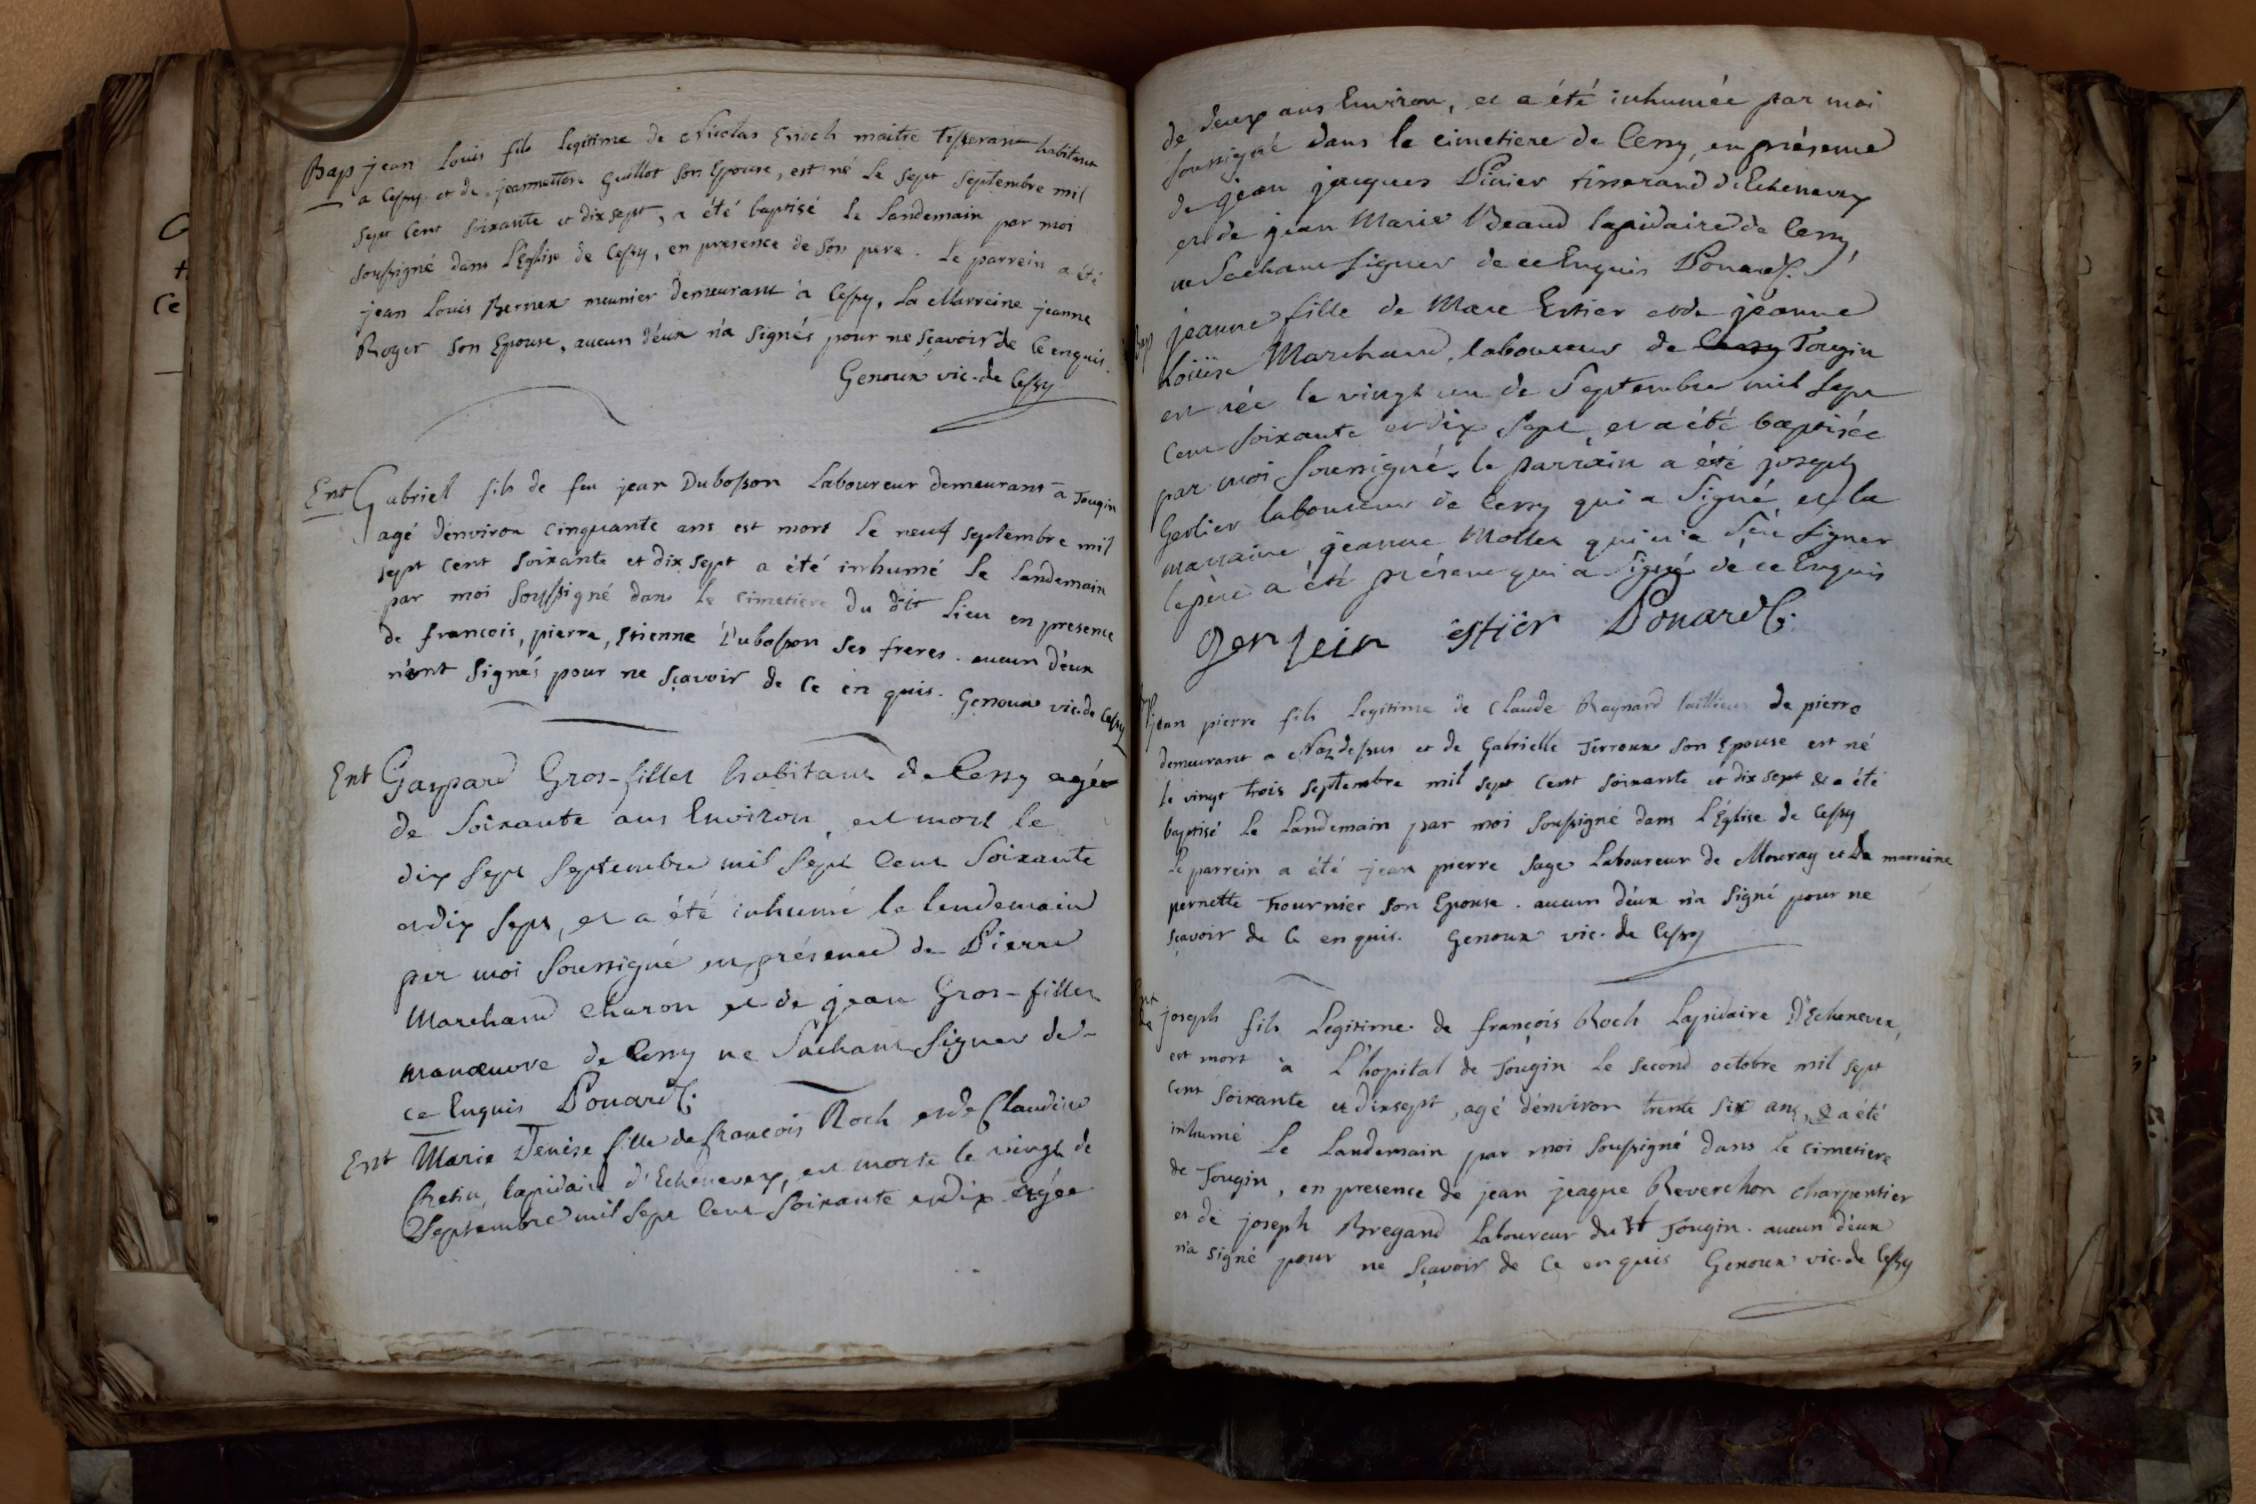 Bap jean Louis fils legitime de Nicolas Enoch maitre Tisserant habitant
a Cessy et de jeannette Guillot son Epouse, est né le sept septembre mil
sept cent soixante et dix sept, a été baptisé le landemain par moi
soussigné dans l'Eglise de Cessy, en presence de son pere. Le parrein a été
jean Louis Bernex meunier demeurant à Cessy, la Marreine jeanne
Roger son Epouse, aucun d'eux n'a signés pour ne sçavoir de ce enquis.
Genoux vic. de Cessy
Ent Gabriel fils de feu jean Dubosson Laboureur demeurant à Tougin
agé d'environ cinquante ans est mort le neuf septembre mil
sept cent soixante et dix sept a été inhumé le landemain
par moi soussigné dans le cimetiere du dit lieu en presence
de francois, pierre, Etienne Dubosson ses freres. aucun d'eux
n'ont signés pour ne sçavoir de ce en quis. Genoux vic. de Cessy
Ent Gaspard Gros-fillet habitant de Cessy agé
de soixante ans Environ, est mort le
dix sept septembre mil sept Cent soixante
et dix sept, et a été inhumé le lendemain
par moi soussigné en présence de Pierre
Marchand charon et de jean Gros-fillet
manœuvre de Cessy ne sachant signer de
ce Enquis Pouard C.
Ent Marie Denise fille de francois Roch et de Claudine
lapidaire d'Echenevex, est morte le vingt de
Septembre mil sept Cent soixante et dix agée
de deux ans Environ, et a été inhumée par moi
soussigné dans le cimetiere de Cessy, en présence
de jean jacques Pinier tisserand d'Echenevex
et de jean Marie Beaud lapidaire de Cessy,
ne sachant signer de ce Enquis Pouard C.
Bap jeanne fille de Marc Estier et de jeanne
Loüise Marchand, laboureur de Cessy Tougin
est née le vingt un de Septembre mil sept
Cent soixante et dix sept, et a été baptisée
par moi soussigné. le parrain a été joseph
Gerlier laboureur de Cessy qui a signé, et la
marraine jeanne Mottex qui n'a sçu signer
le père a été présent qui a signé de ce Enquis
estier Pouard C.
jean pierre fils legitime de Claude Raynard tailleur de pierre
demeurant a Nazdessus et de Gabrielle Terroux son Epouse est né
le vingt trois septembre mil sept cent soixante et dix sept & a été
baptisé le landemain par moi soussigné dans l'Église de Cessy
Le parrein a été jean pierre sage Laboureur de Mouray et la marreine
pernette Fournier son Epouse. aucun d'eux n'a signé pour ne
sçavoir de ce enquis. Genoux vic. de Cessy
Ent joseph fils Legitime de françois Roch Lapidaire D'Echenevex,
est mort à L'hopital de Tougin le second octobre mil sept
cent soixante et dixsept, agé d'environ trente six ans, & a été
inhumé Le Landemain par moi soussigné dans le cimetiere
de Tougin, en presence de jean jeaque Reverchon charpentier
et de joseph Bregand Laboureur du dt Tougin. aucun d'eux
n'a signé pour ne sçavoir de ce en quis Genoux vic. de Cessy